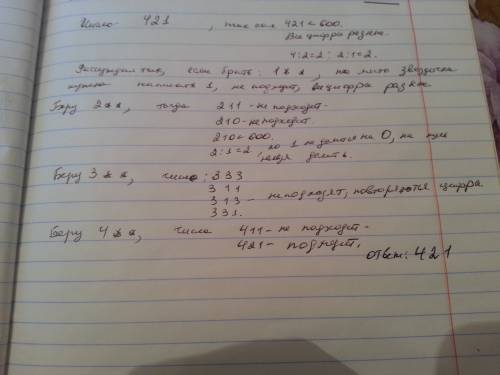 Число 421, так как 421 < 600.
Все цифры разные.
4:2=2; 2:1=2.
Рассуждал так, если брать: 1**, на место звездочек
нужно написать 1, не подходит, цифры разные
Беру 2**, тогда 211 - не подходит.
210 - не подходит.
210 < 600.
2:1=2, но 1 не делится на 0, на нуль
нельзя делить.
Беру 3**, числа: 333
311
313 - не подходят, повторяются цифры
331.
Беру 4**, числа 411 - не подходит.
421 - подходит.
Ответ: 421